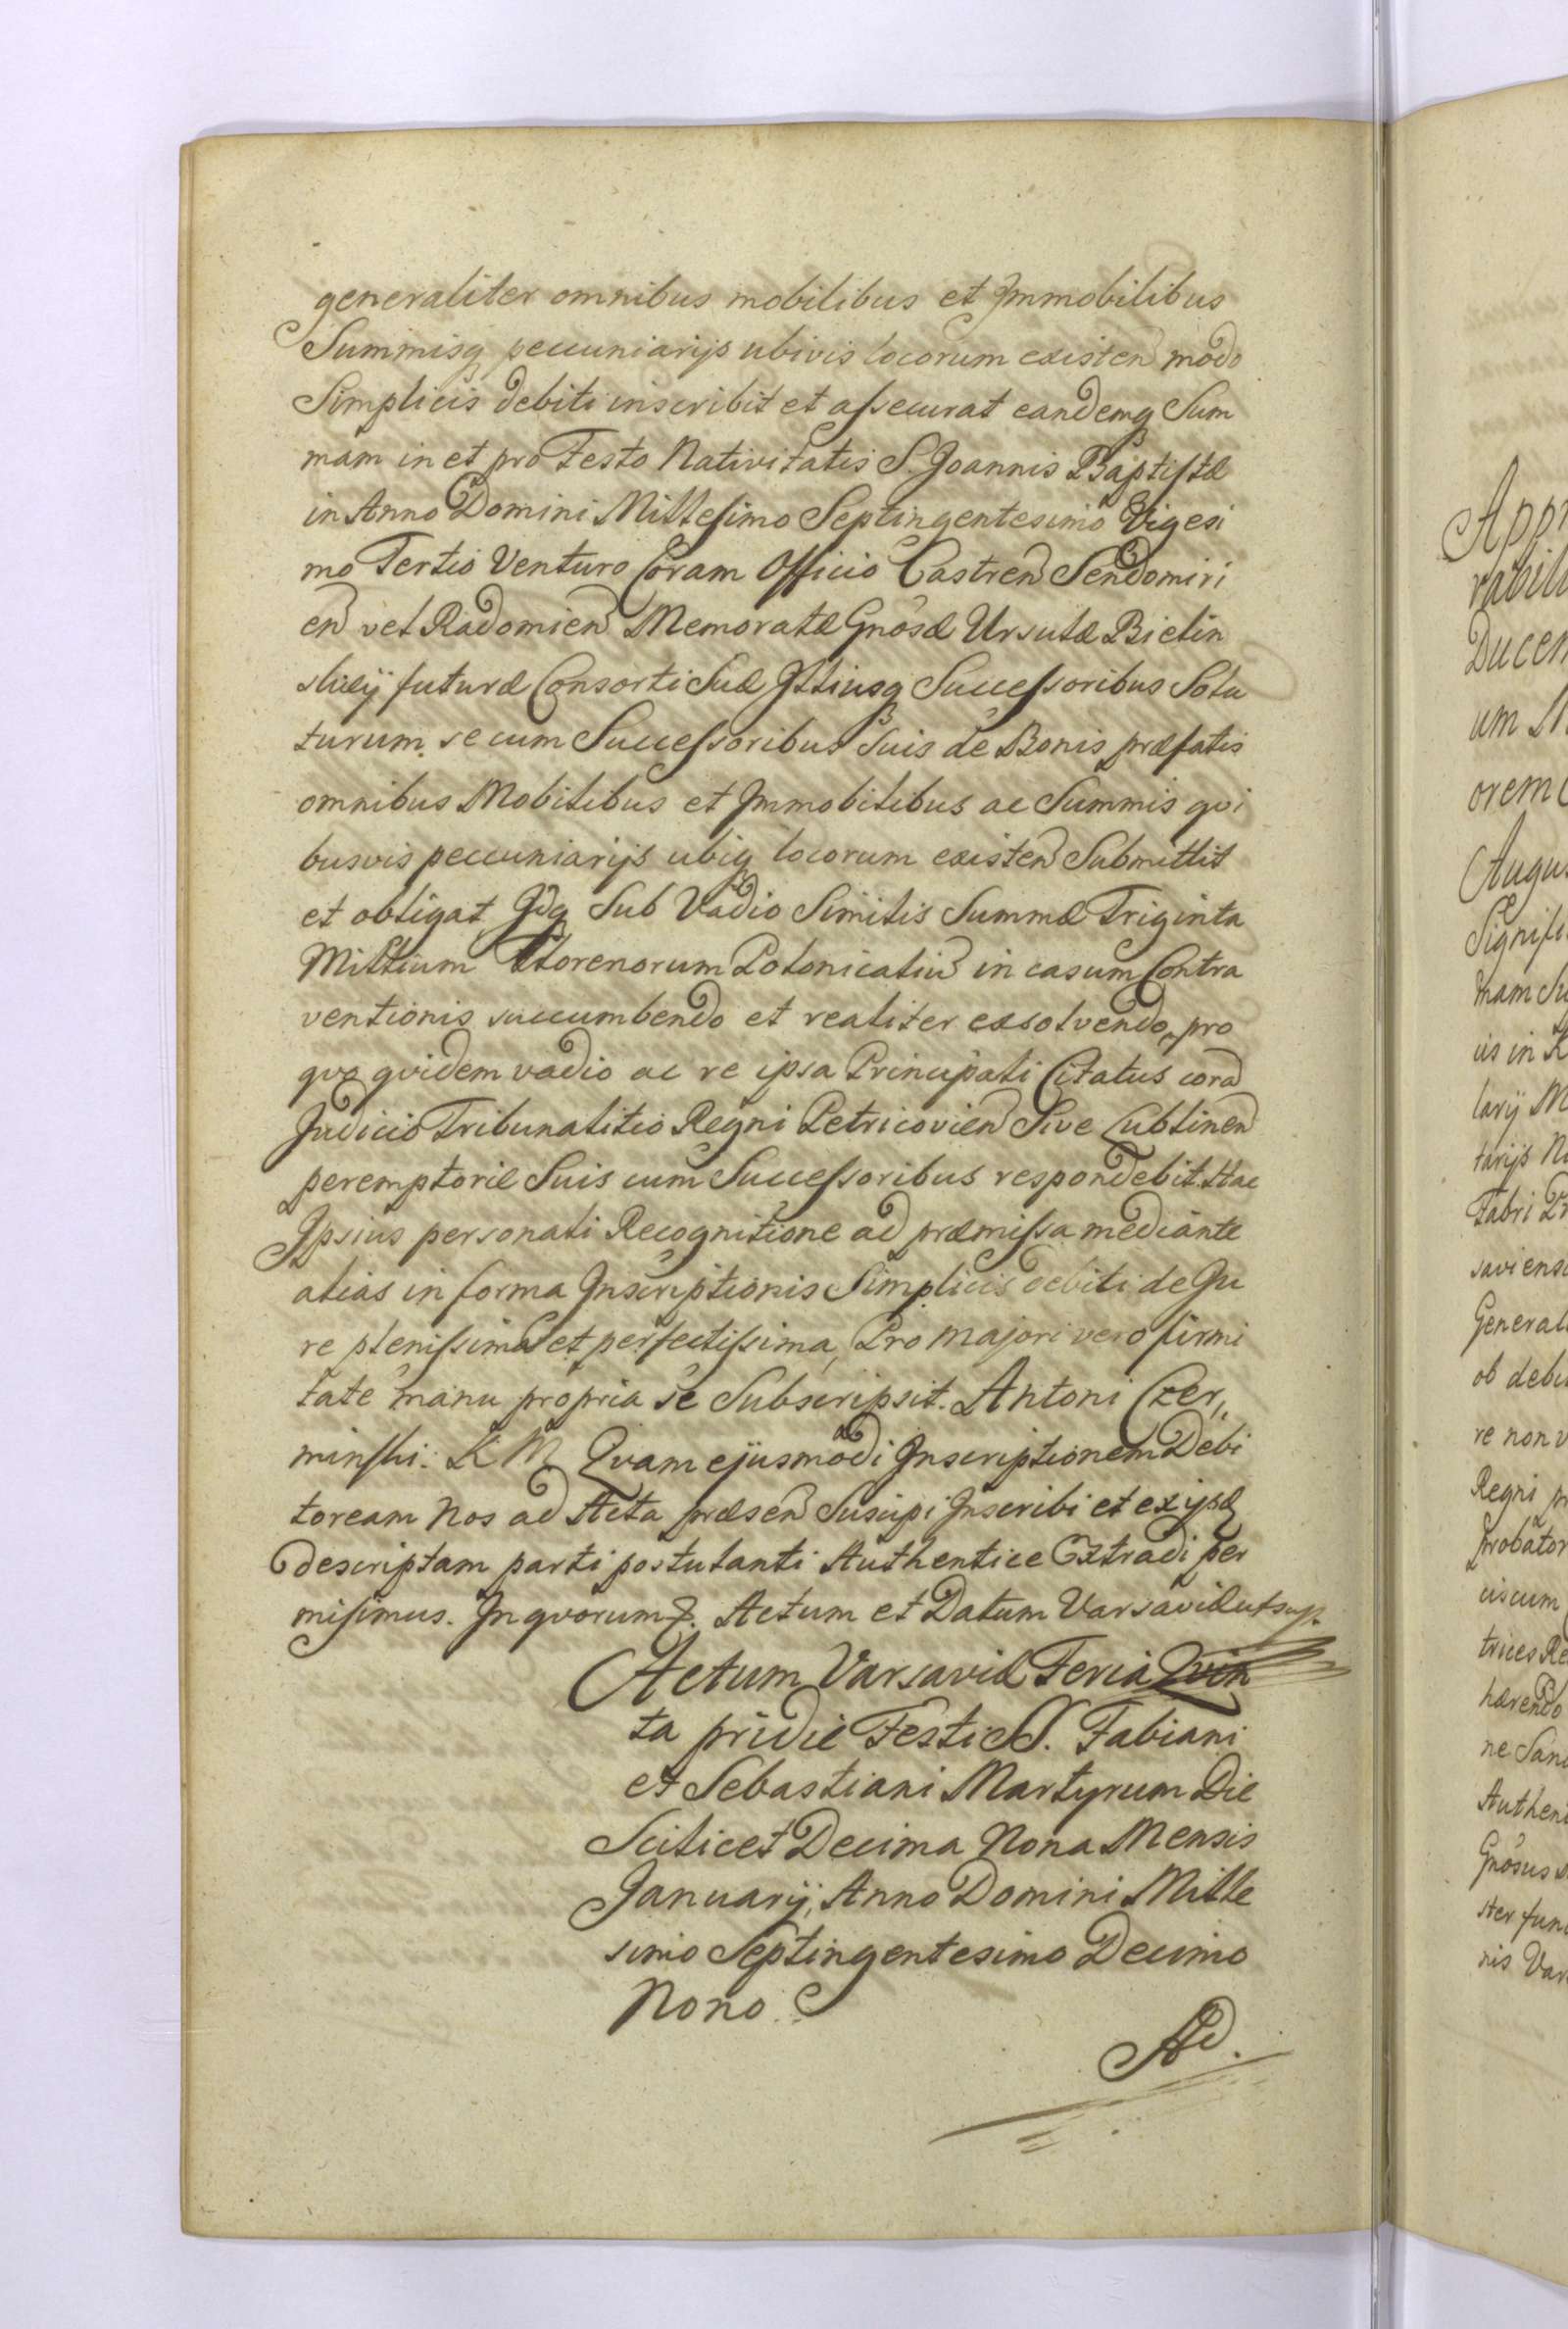 generaliter omnibus mobilibus et Immobilibus
Summisq pecuniarijs ubivis locorum existen modo
Simplicis debiti inscribit et assecurat eandemq Sum
mam in et pro Festo Nativitatis S. Joannis Baptistæ
in Anno Domini Millesimo Septingentesimo Vigesi
mo Tertio Venturo Coram Officio Castren Sendomiri
en vel Radomien Memoratæ Gnosæ Ursulæ Bielin
skiey futuræ Consorti Suæ Illiusq Successoribus Solu
turum se cum Successoribus Suis de Bonis præfatis
omnibus Mobilibus et Immobilibus ac Summis qvi
busvis pecuniarijs ubiq locorum existen Submittit
et obligat Idq Sub Vadio Similis Summæ Triginta
Millium Florenorum Polonicaliu in casum Contra
ventionis succumbendo et realiter exsolvendo, pro
qvo qvidem vadio ac re ipsa Principali Citatus cora
Judicio Tribunalitio Regni Petricovien Sive Lublinen
peremptorie Suis cum Successoribus respondebit. Hac
Ipsius personali Recognitione ad præmissa mediante
alias in forma Inscriptionis Simplicis debiti de Ju
re plenissima et perfectissima, Pro majori vero firmi
tate manu propria se Subscripsit. Antoni Czer,,
minski. K M Qvam ejusmodi Inscriptionem Debi
toream Nos ad Acta præsen Suscipi Inscribi et ex ijsd
descriptam parti postulanti Authentice Extradi per
misimus. In qvorum &. Actum et Datum Varsaviæ ut sup.
Actum Varsaviæ Feria Qvin
ta pridie Festi SS. Fabiani
et Sebastiani Martyrum Die
Scilicet Decima Nona Mensis
Januarij, Anno Domini Mille
simo Septingentesimo Decimo
Nono.
Ad.
Appr
Ducen
um
orem
Augus
Signifi
mam Su
us in R
larij M
tarijs N
Fabri Pr
saviens
General
ob debi
re non v
Regni pr
probator
us cum
trices Re
hærendo
ne Sanc
Authen
Gnosus
ster fun
nis Var